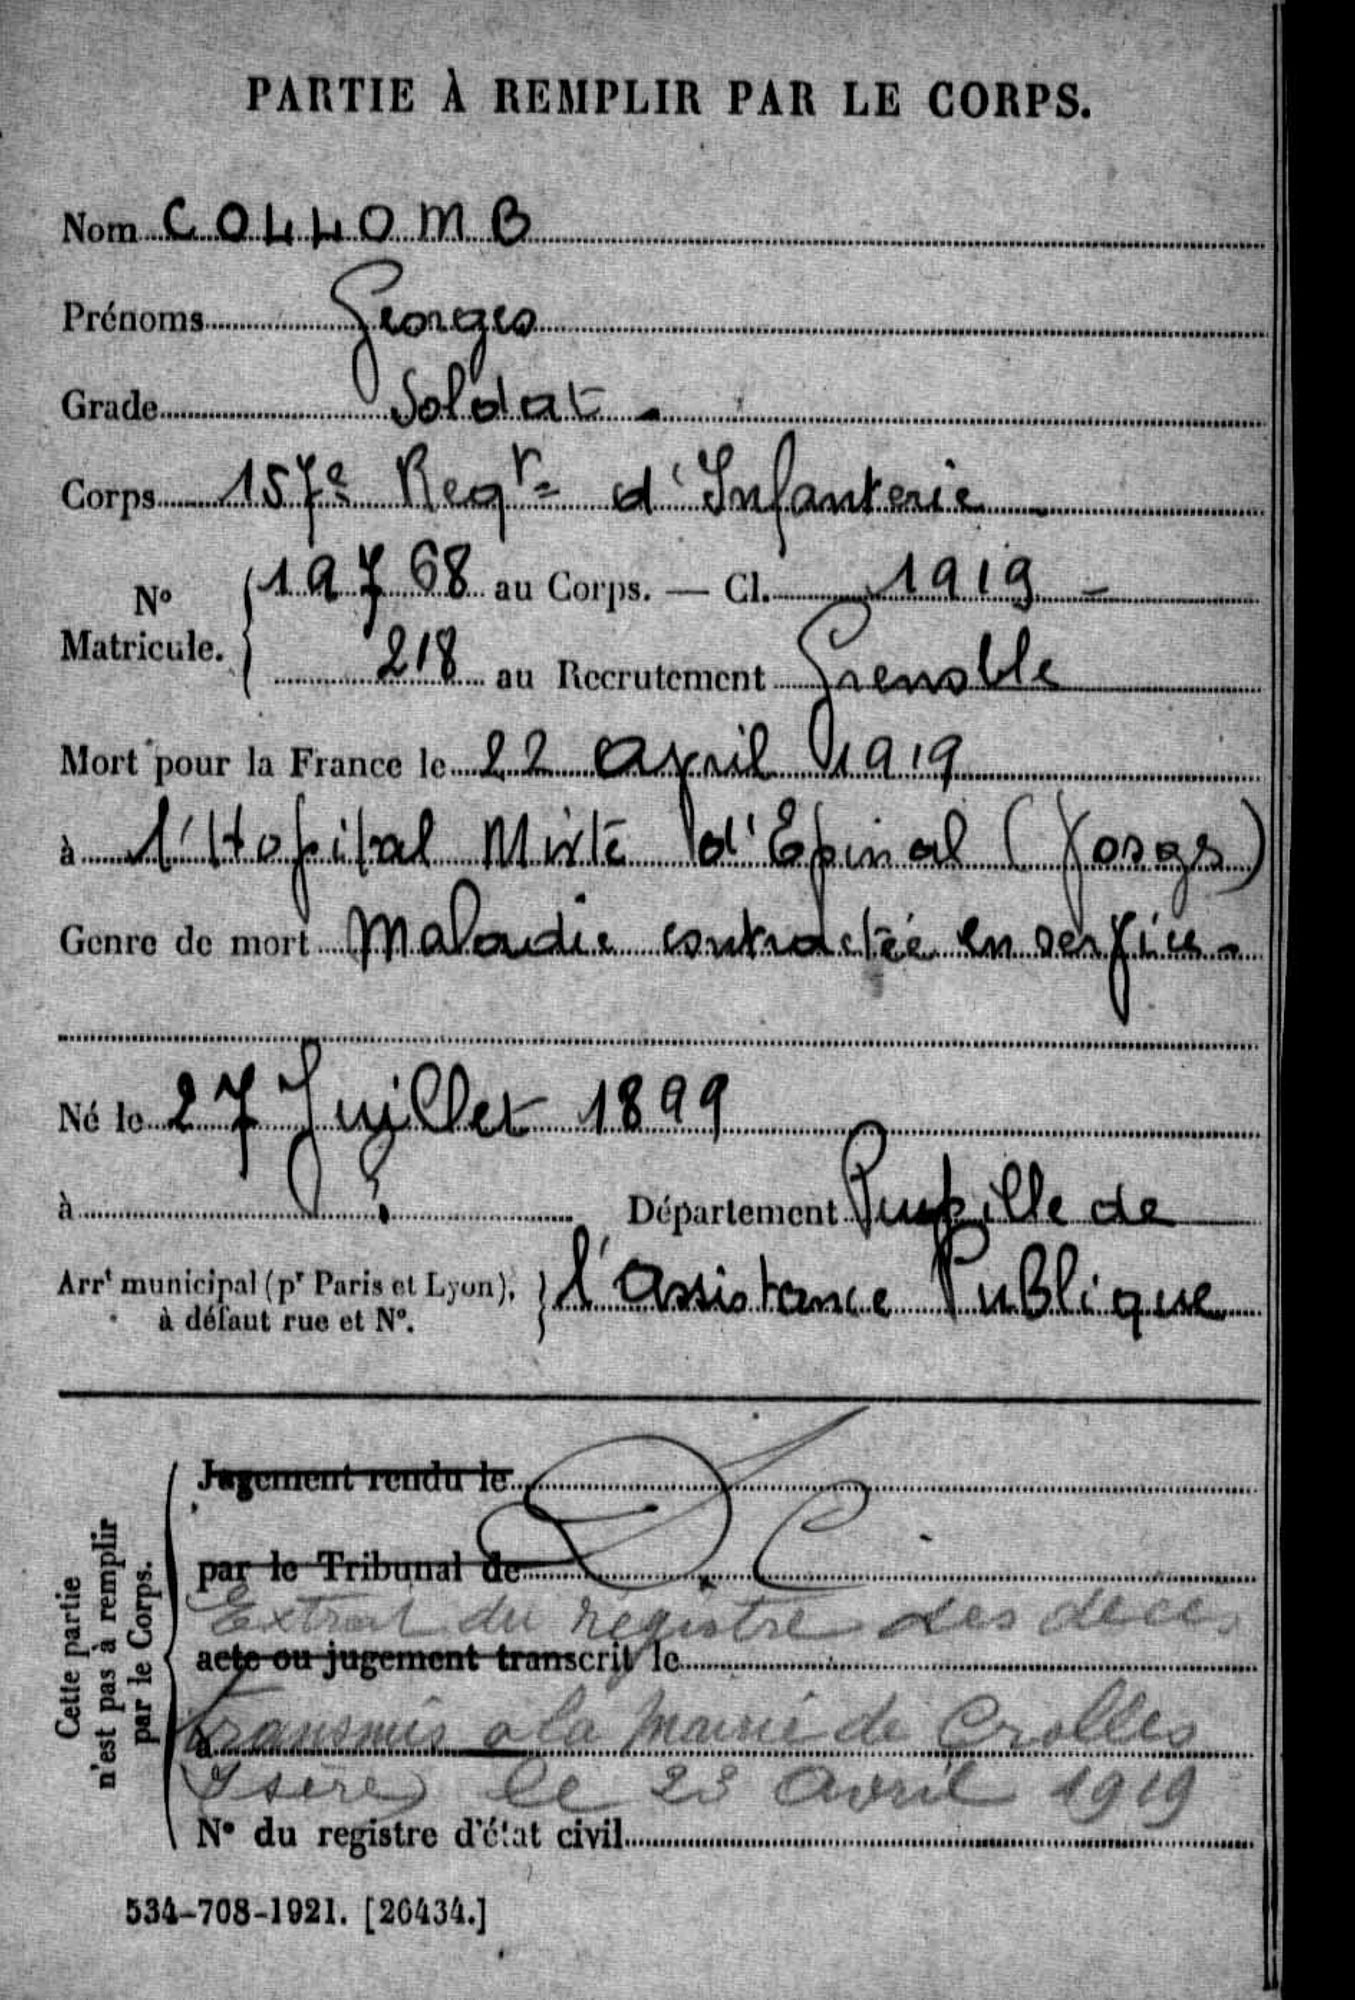 PARTIE À REMPLIR PAR LE CORPS.
Nom COLLOMB
Prénoms Georges
Grade Soldat -
Corps 157e Regt d'Infanterie -
No Matricule. { 19768 au Corps. — Cl. 1919 -
218 au Recrutement Grenoble
Mort pour la France le 22 avril 1919
à l'Hopital Mixte d'Epinal (Vosges)
Genre de mort Maladie contractée en service -
Né le 27 Juillet 1899
à ? Département Pupille de
Arrt municipal (pr Paris et Lyon), } l'Assistance Publique
à défaut rue et No.
Cette partie n'est pas à remplir par le Corps.
Jugement rendu le
par le Tribunal de
Extrait du registre des décès
acte ou jugement transcrit le
transmis a la Mairie de Crolles
à
Isère) le 23 avril 1919
No du registre d'état civil
534-708-1921. [26434.]